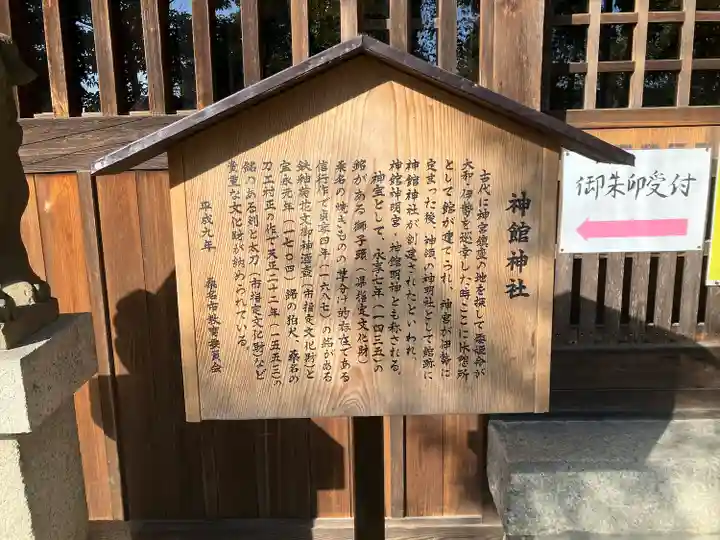 神館神社
古代に神宮鎮座の地を探して倭姫命が
大和・伊勢を巡幸した時ここに休憩所
として館が建てられ、神宮が伊勢に
定まった後、神領の神明社として館跡に
神館神社が創建されたといわれ、
神館神明宮・神館明神とも称される。
神宝として、永享七年(一四三五)の
銘がある獅子頭(県指定文化財)
桑名の焼きものの草分け的存在である
信行作で貞享四年(一六八七)の銘がある
鉄釉菊花文御神酒壺(市指定文化財)と
宝永元年(一七〇四)銘の狛犬、桑名の
刀工村正の作で天正二十二年(一五五三)の
銘のある剣と太刀(市指定文化財)など
貴重な文化財が納められている。
平成九年 桑名市教育委員会
御朱印受付